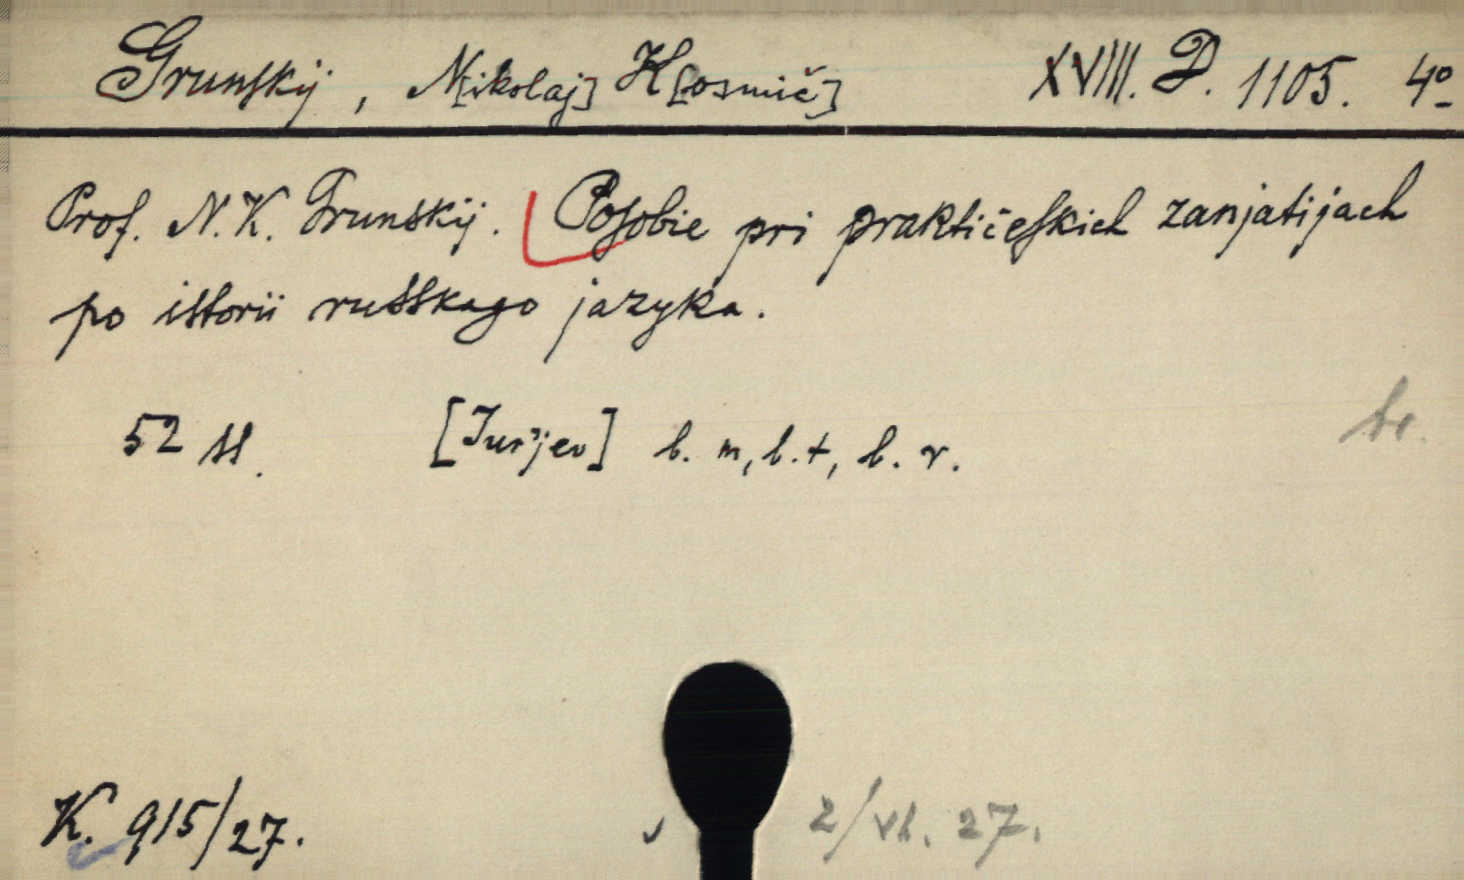 Grunskij, N[ikolaj] K[osmič] XVIII. D. 1105. 4º
Prof. N. K. Grunskij. Posobie pri praktičeskich zanjatijach
po istorii russkago jazyka.
52 ss. [Jur'jev] b. m, b. t, b. r.
br.
K. 915/27. 2/VI. 27.